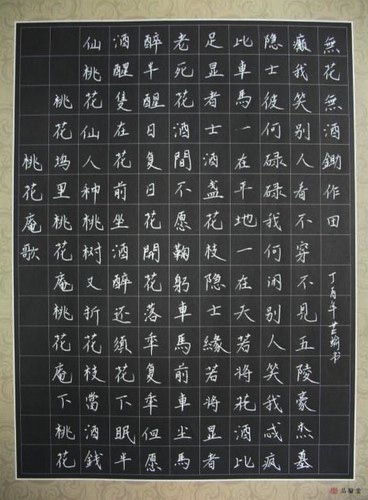 桃花庵歌
桃花塢里桃花庵桃花庵下桃花
仙桃花仙人种桃树又折花枝當酒錢
酒醒隻在花前坐酒醉还須花下眠半
醉半醒日复日花開花落年复年但愿
老死花酒間不愿鞠躬車馬前車尘馬
足显者士酒盞花枝隐士緣若將显者
比車馬一在平地一在天若將花酒比
隐士彼何碌碌我何闲別人笑我忒疯
癫我笑別人看不穿不見五陵豪杰墓
無花無酒鋤作田
丁酉年 书